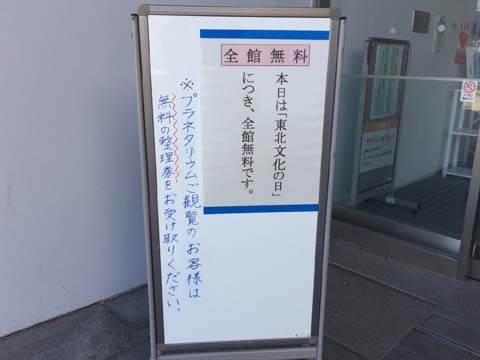 全館無料
本日は「東北文化の日」
につき、全館無料です。
※プラネタリウムご観覧のお客様は
無料の整理券をお受け取りください。